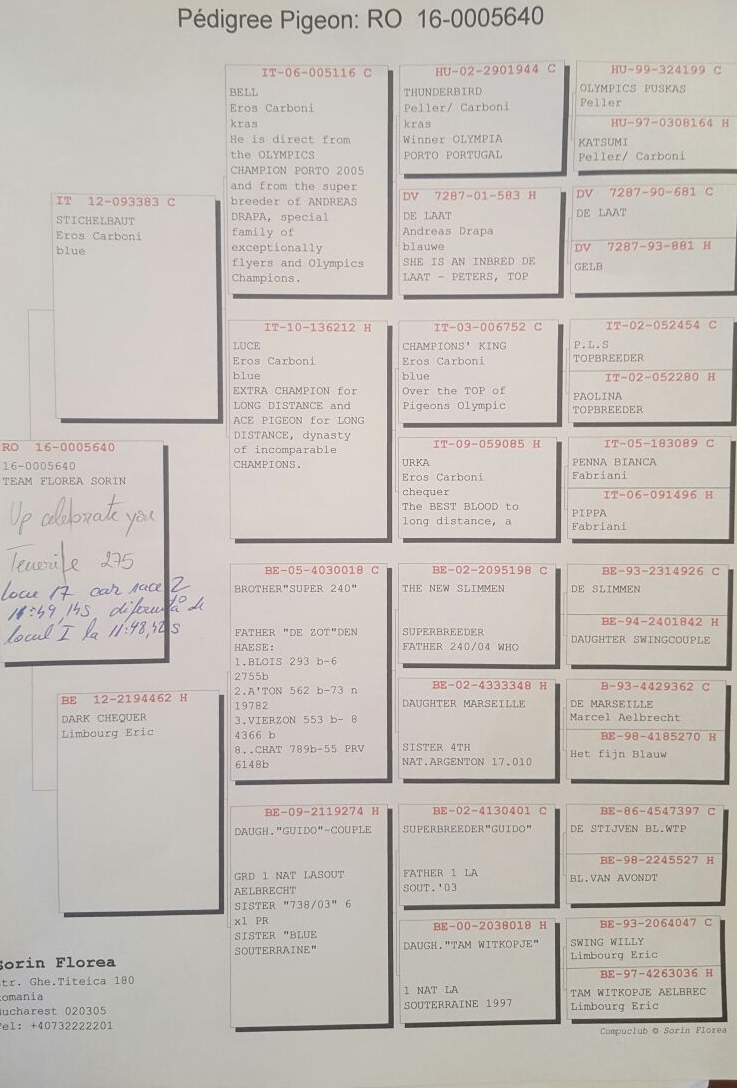 Pédigree Pigeon: RO 16-0005640
IT 12-093383 C
STICHELBAUT
Eros Carboni
blue
RO 16-0005640
16-0005640
TEAM FLOREA SORIN
Up celebrate you
Tenerife 275
locul 17 car race 2
11:49,14s diferență de
locul I la 11:48,42s
BE 12-2194462 H
DARK CHEQUER
Limbourg Eric
Sorin Florea
tr. Ghe.Titeica 180
omania
ucharest 020305
el: +40732222201
IT-06-005116 C
BELL
Eros Carboni
kras
He is direct from
the OLYMPICS
CHAMPION PORTO 2005
and from the super
breeder of ANDREAS
DRAPA, special
family of
exceptionally
flyers and Olympics
Champions.
IT-10-136212 H
LUCE
Eros Carboni
blue
EXTRA CHAMPION for
LONG DISTANCE and
ACE PIGEON for LONG
DISTANCE, dynasty
of incomparable
CHAMPIONS.
BE-05-4030018 C
BROTHER"SUPER 240"
FATHER "DE ZOT"DEN
HAESE:
1.BLOIS 293 b-6
2755b
2.A'TON 562 b-73 n
19782
3.VIERZON 553 b- 8
4366 b
8..CHAT 789b-55 PRV
6148b
BE-09-2119274 H
DAUGH."GUIDO"-COUPLE
GRD 1 NAT LASOUT
AELBRECHT
SISTER "738/03" 6
x1 PR
SISTER "BLUE
SOUTERRAINE"
HU-02-2901944 C
THUNDERBIRD
Peller/ Carboni
kras
Winner OLYMPIA
PORTO PORTUGAL
DV 7287-01-583 H
DE LAAT
Andreas Drapa
blauwe
SHE IS AN INBRED DE
LAAT - PETERS, TOP
IT-03-006752 C
CHAMPIONS' KING
Eros Carboni
blue
Over the TOP of
Pigeons Olympic
IT-09-059085 H
URKA
Eros Carboni
chequer
The BEST BLOOD to
long distance, a
BE-02-2095198 C
THE NEW SLIMMEN
SUPERBREEDER
FATHER 240/04 WHO
BE-02-4333348 H
DAUGHTER MARSEILLE
SISTER 4TH
NAT.ARGENTON 17.010
BE-02-4130401 C
SUPERBREEDER"GUIDO"
FATHER 1 LA
SOUT.'03
BE-00-2038018 H
DAUGH."TAM WITKOPJE"
1 NAT LA
SOUTERRAINE 1997
HU-99-324199 C
OLYMPICS PUSKAS
Peller
HU-97-0308164 H
KATSUMI
Peller/ Carboni
DV 7287-90-681 C
DE LAAT
DV 7287-93-881 H
GELB
IT-02-052454 C
P.L.S
TOPBREEDER
IT-02-052280 H
PAOLINA
TOPBREEDER
IT-05-183089 C
PENNA BIANCA
Fabriani
IT-06-091496 H
PIPPA
Fabriani
BE-93-2314926 C
DE SLIMMEN
BE-94-2401842 H
DAUGHTER SWINGCOUPLE
B-93-4429362 C
DE MARSEILLE
Marcel Aelbrecht
BE-98-4185270 H
Het fijn Blauw
BE-86-4547397 C
DE STIJVEN BL.WTP
BE-98-2245527 H
BL.VAN AVONDT
BE-93-2064047 C
SWING WILLY
Limbourg Eric
BE-97-4263036 H
TAM WITKOPJE AELBREC
Limbourg Eric
Compuclub © Sorin Florea